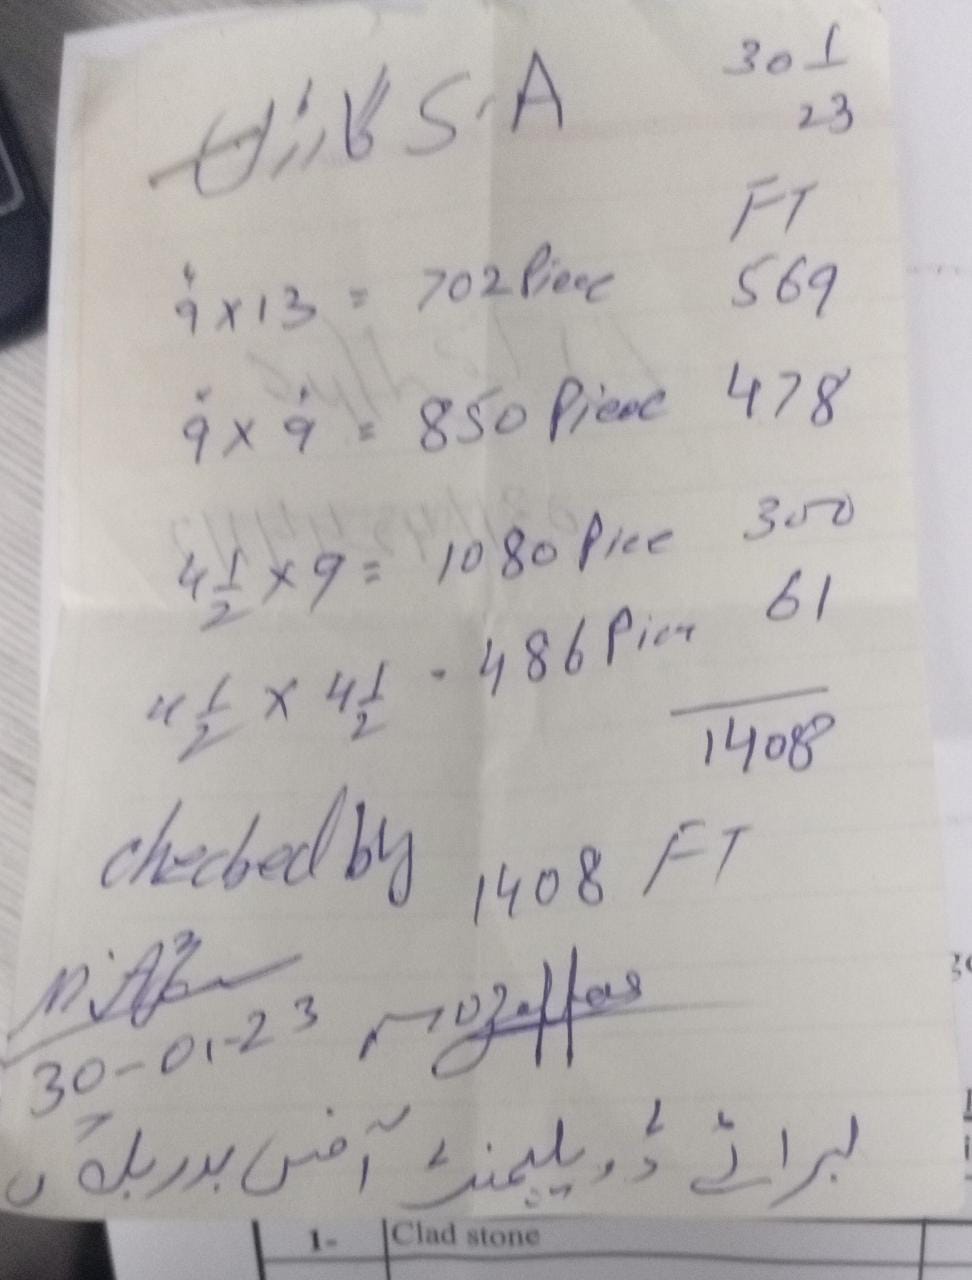 S.A 30 1
23
FT
9" x 13 = 702 Piece 569
9" x 9" = 850 Piece 478
4 1/2 x 9 = 1080 Piece 300
4 1/2 x 4 1/2 - 486 Piece 61
1408
checked by 1408 FT
30-01-23 mozaffar
برائے
1- Clad stone